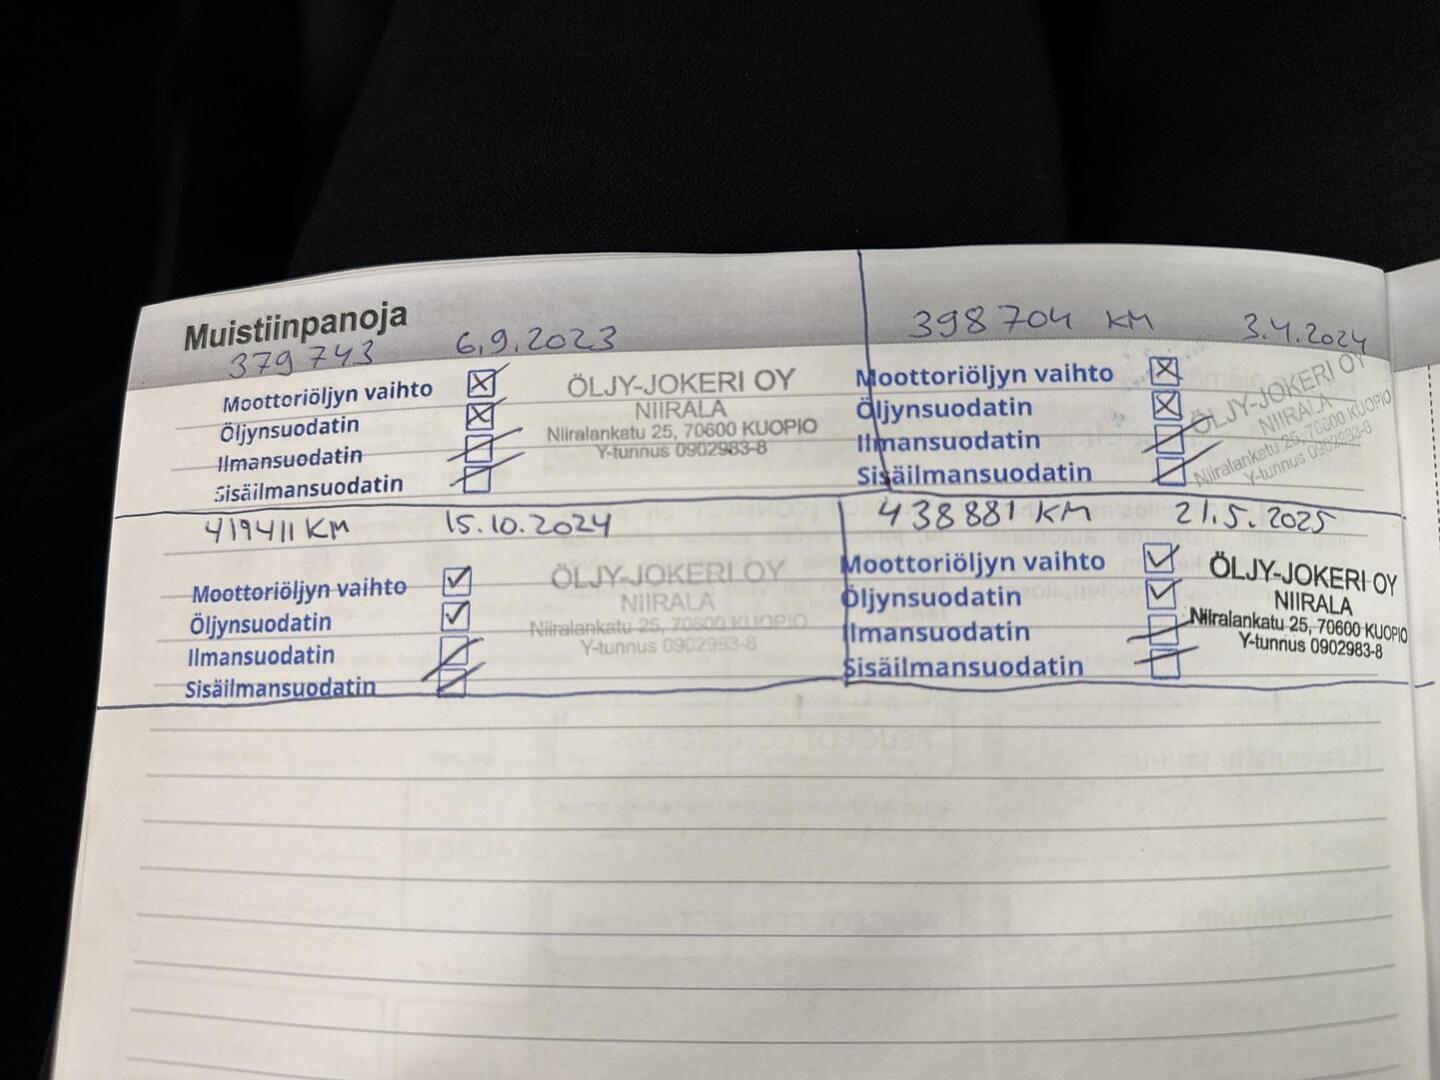 Muistiinpanoja
379 743 6.9.2023
Moottoriöljyn vaihto
Öljynsuodatin
Ilmansuodatin
Sisäilmansuodatin
ÖLJY-JOKERI OY
NIIRALA
Niiralankatu 25, 70600 KUOPIO
Y-tunnus 0902983-8
398 704 KM 3.4.2024
Moottoriöljyn vaihto
Öljynsuodatin
Ilmansuodatin
Sisäilmansuodatin
ÖLJY-JOKERI OY
NIIRALA
Niiralankatu 25, 70600 KUOPIO
Y-tunnus 0902983-8
419411 KM 15.10.2024
Moottoriöljyn vaihto
Öljynsuodatin
Ilmansuodatin
Sisäilmansuodatin
ÖLJY-JOKERI OY
NIIRALA
Niiralankatu 25, 70600 KUOPIO
Y-tunnus 0902983-8
438 881 KM 21.5.2025
Moottoriöljyn vaihto
Öljynsuodatin
Ilmansuodatin
Sisäilmansuodatin
ÖLJY-JOKERI OY
NIIRALA
Niiralankatu 25, 70600 KUOPIO
Y-tunnus 0902983-8